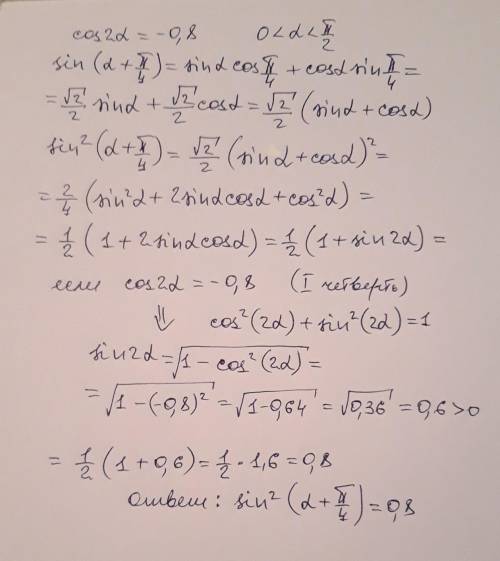 cos2α = -0,8 0 < α < π/2
sin (α + π/4) = sinα cos π/4 + cosα sin π/4 =
= √2/2 sinα + √2/2 cosα = √2/2 (sinα + cosα)
sin² (α + π/4) = √2/2 (sinα + cosα)² =
= 2/4 (sin²α + 2sinαcosα + cos²α) =
= 1/2 (1 + 2sinαcosα) = 1/2 (1 + sin2α) =
если cos2α = -0,8 (I четверть)
⇓ cos²(2α) + sin²(2α) = 1
sin2α = √(1 - cos²(2α)) =
= √(1 - (-0,8)²) = √(1-0,64) = √0,36 = 0,6 > 0
= 1/2 (1 + 0,6) = 1/2 · 1,6 = 0,8
ответ: sin² (α + π/4) = 0,8